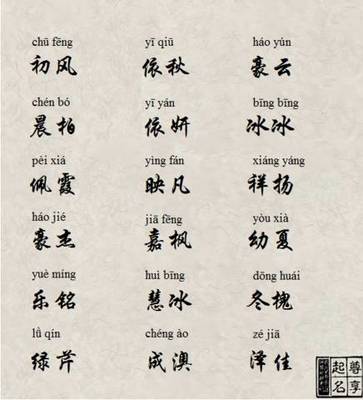 chū fēng yī qiū háo yún
初风 依秋 豪云
chén bó yī yán bīng bīng
晨柏 依妍 冰冰
pèi xiá yìng fán xiáng yáng
佩霞 映凡 祥扬
háo jié jiā fēng yòu xià
豪杰 嘉枫 幼夏
yuè míng huì bīng dōng huái
乐铭 慧冰 冬槐
lǜ qín chéng ào zé jiā
绿芹 成澳 泽佳
尊享
起名